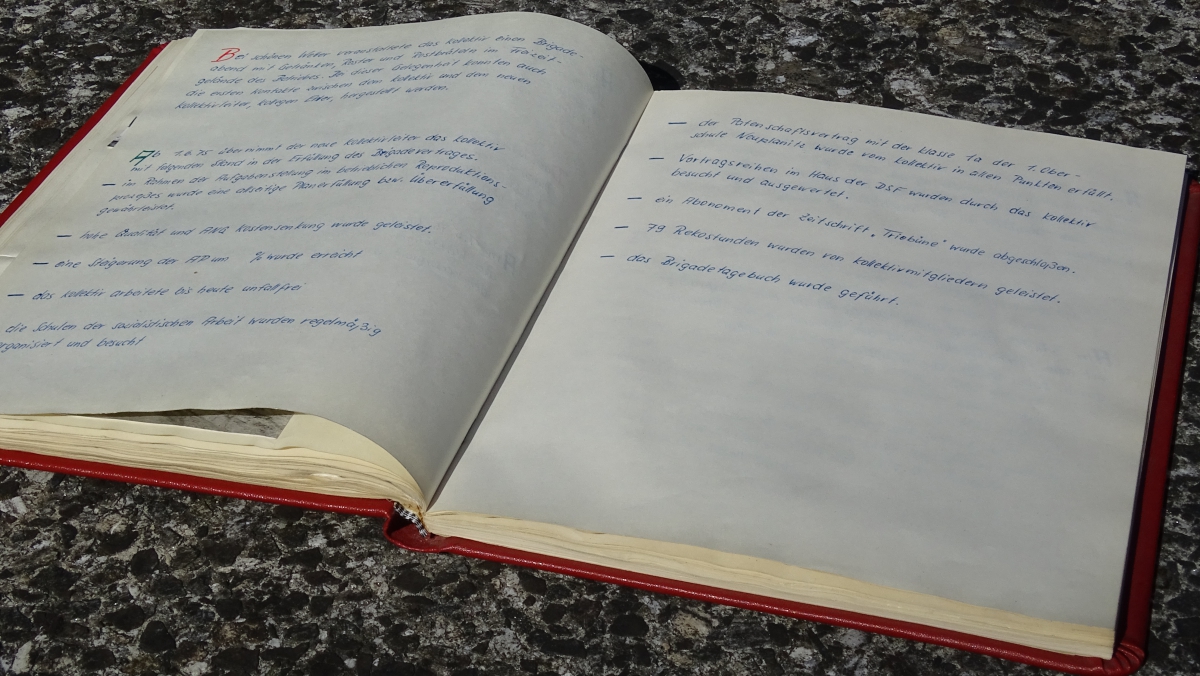 Bei schönem Wetter veranstaltete das Kollektiv einen Brigade-
abend mit Getränken, Roster und Rostbräteln im Freizeit-
gelände des Betriebes. Zu dieser Gelegenheit konnten auch
die ersten Kontakte zwischen dem Kollektiv und dem neuen
Kollektivleiter, Kollegen hergestellt werden.
Ab 1.6.75 übernimmt der neue Kollektivleiter das Kollektiv
mit folgendem Stand in der Erfüllung des Brigadevertrages.
— im Rahmen der Aufgabenstellung im betrieblichen Reproduktions-
prozeßes wurde eine allseitige Planerfüllung bzw. Übererfüllung
gewährleistet.
— hohe Qualität und Kostensenkung wurde geleistet.
— eine Steigerung der AP um % wurde erreicht
— das Kollektiv arbeitete bis heute unfallfrei
die Schulen der sozialistischen Arbeit wurden regelmäßig
organisiert und besucht
— der Patenschaftsvertrag mit der Klasse 1a der 1. Ober-
schule Neuplanitz wurde vom Kollektiv in allen Punkten erfüllt.
— Vortragsreihen im Haus der DSF wurden durch das Kollektiv
besucht und ausgewertet.
— ein Abonoment der Zeitschrift „Triebüne" wurde abgeschloßen.
— 79 Rekostunden wurden von Kollektivmitgliedern geleistet.
— das Brigadetagebuch wurde geführt.